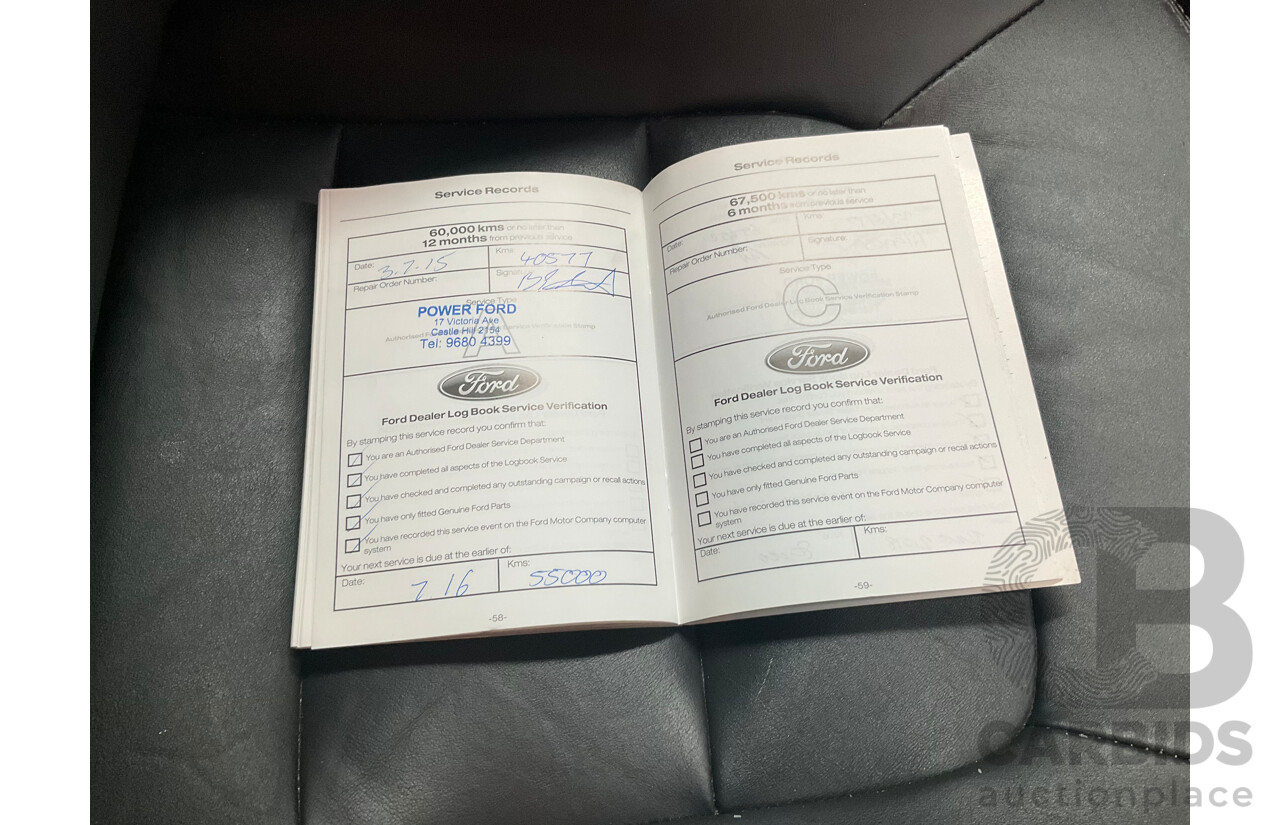 Service Records
60,000 kms or no later than
12 months from previous service
Date: 3.7.15
Kms: 40577
Repair Order Number:
Signature:
Service Type
A
POWER FORD
17 Victoria Ave
Castle Hill 2154
Tel: 9680 4399
Authorised Service Verification Stamp
Ford
Ford Dealer Log Book Service Verification
By stamping this service record you confirm that:
You are an Authorised Ford Dealer Service Department
You have completed all aspects of the Logbook Service
You have checked and completed any outstanding campaign or recall actions
You have only fitted Genuine Ford Parts
You have recorded this service event on the Ford Motor Company computer
system
Your next service is due at the earlier of:
Date: 7 16
Kms: 55000
-58-
Service Records
67,500 kms or no later than
6 months from previous service
Date:
Kms:
Repair Order Number:
Signature:
Service Type
C
Authorised Ford Dealer Log Book Service Verification Stamp
Ford
Ford Dealer Log Book Service Verification
By stamping this service record you confirm that:
You are an Authorised Ford Dealer Service Department
You have completed all aspects of the Logbook Service
You have checked and completed any outstanding campaign or recall actions
You have only fitted Genuine Ford Parts
You have recorded this service event on the Ford Motor Company computer
system
Your next service is due at the earlier of:
Date:
Kms:
-59-
B
CARBIDS
auctionplace